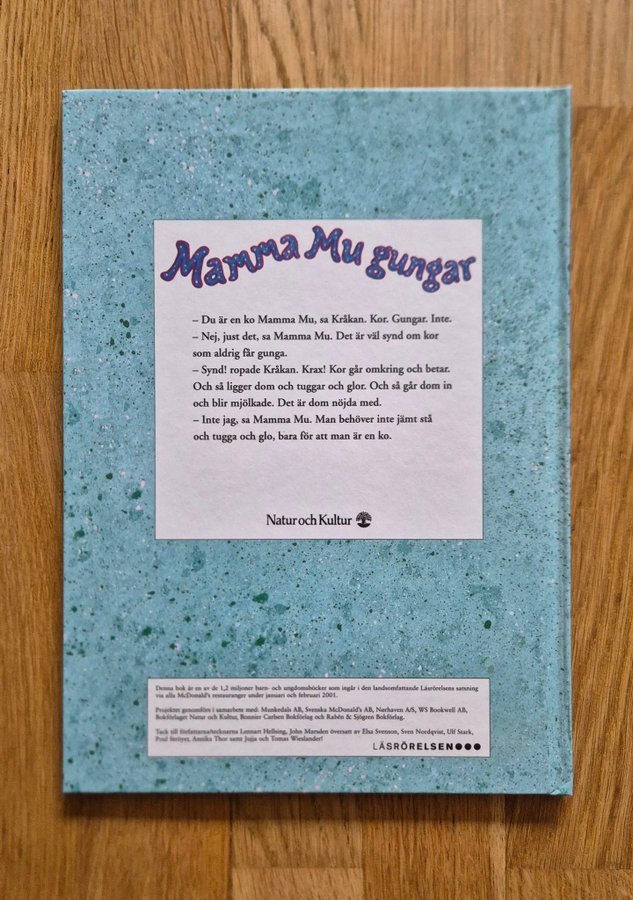 Mamma Mu gungar
– Du är en ko Mamma Mu, sa Kråkan. Kor. Gungar. Inte.
– Nej, just det, sa Mamma Mu. Det är väl synd om kor
som aldrig får gunga.
– Synd! ropade Kråkan. Krax! Kor går omkring och betar.
Och så ligger dom och tuggar och glor. Och så går dom in
och blir mjölkade. Det är dom nöjda med.
– Inte jag, sa Mamma Mu. Man behöver inte jämt stå
och tugga och glo, bara för att man är en ko.
Natur och Kultur
Denna bok är en av de 1,2 miljoner barn- och ungdomsböcker som ingår i den landsomfattande Läsrörelsens satsning
via alla McDonald's restauranger under januari och februari 2001.
Projektet genomförs i samarbete med: Munkedals AB, Svenska McDonald's AB, Nørhaven A/S, WS Bookwell AB,
Bokförlaget Natur och Kultur, Bonnier Carlsen Bokförlag och Rabén & Sjögren Bokförlag.
Tack till författarna/tecknarna Lennart Hellsing, John Marsden översatt av Elsa Svenson, Sven Nordqvist, Ulf Stark,
Poul Ströyer, Annika Thor samt Jujja och Tomas Wieslander!
LÄSRÖRELSEN